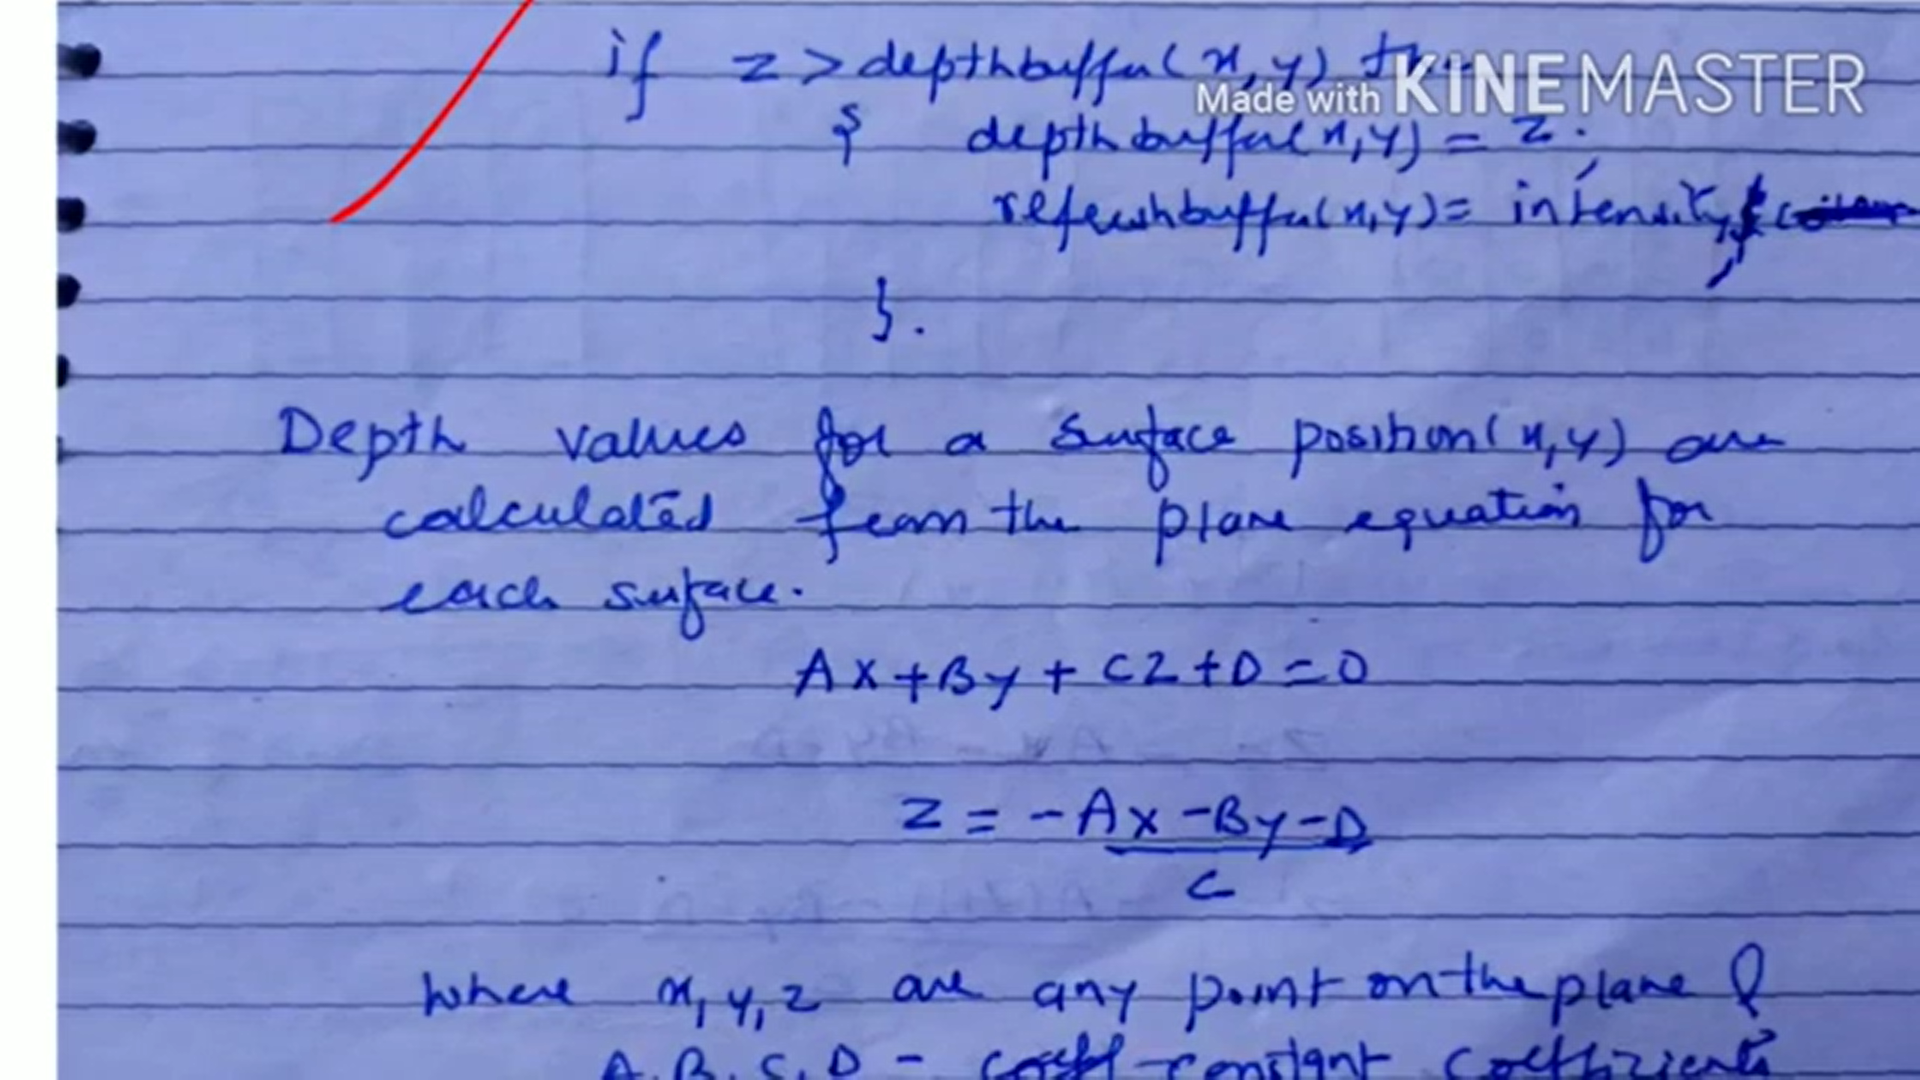 if z > depthbuffer(x,y)
Made with KINEMASTER
{ depthbuffer(x,y) = z;
refreshbuffer(x,y) = intensity;
}.
Depth values for a surface position (x,y) are
calculated from the plane equation for
each surface.
Ax + By + Cz + D = 0
z = -Ax - By - D
C
where x, y, z are any point on the plane &
A, B, C, D - constant coefficients